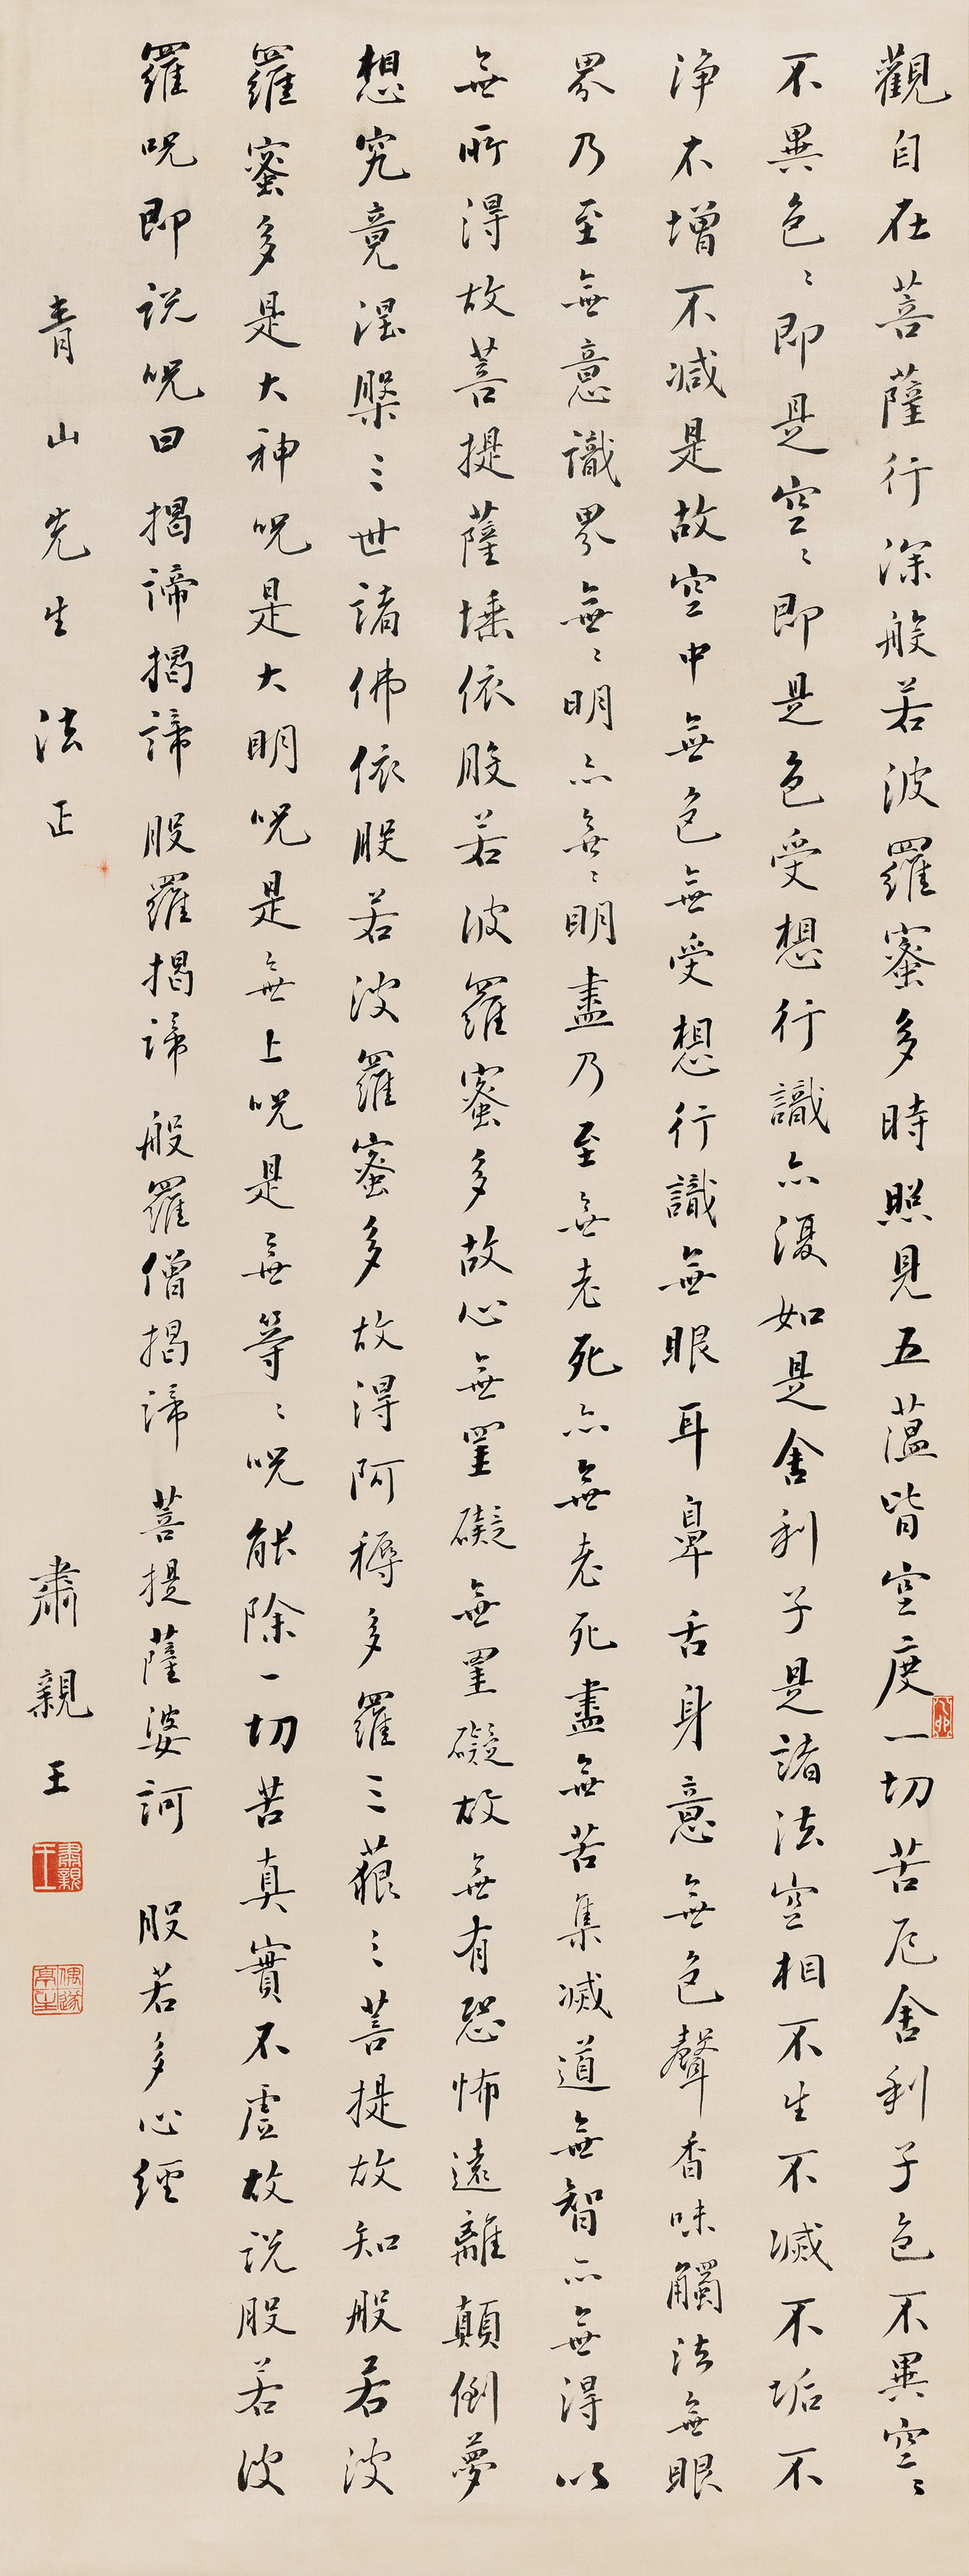 觀自在菩薩行深般若波羅蜜多時照見五蘊皆空度一切苦厄舍利子色不異空〻
不異色〻即是空〻即是色受想行識亦復如是舍利子是諸法空相不生不滅不垢不
淨不增不減是故空中無色無受想行識無眼耳鼻舌身意無色聲香味觸法無眼
界乃至無意識界無〻明亦無〻明盡乃至無老死亦無老死盡無苦集滅道無智亦無得以
無所得故菩提薩埵依般若波羅蜜多故心無罣礙無罣礙故無有恐怖遠離顛倒夢
想究竟涅槃三世諸佛依般若波羅蜜多故得阿耨多羅三藐三菩提故知般若波
羅蜜多是大神呪是大明呪是無上呪是無等〻呪能除一切苦真實不虛故說般若波
羅呪即說呪曰 揭諦揭諦 般羅揭諦 般羅僧揭諦 菩提薩婆訶 般若多心經
青山先生法正
肅親王
肅親王
偶遂亭主